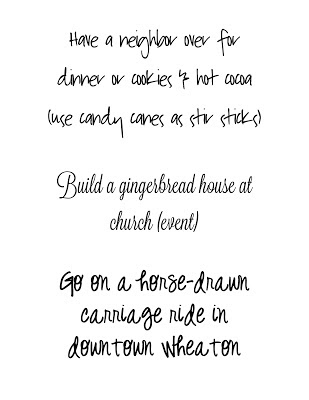 Have a neighbor over for
dinner or cookies & hot cocoa
(use candy canes as stir sticks)
Build a gingerbread house at
church (event)
Go on a horse-drawn
carriage ride in
downtown Wheaton